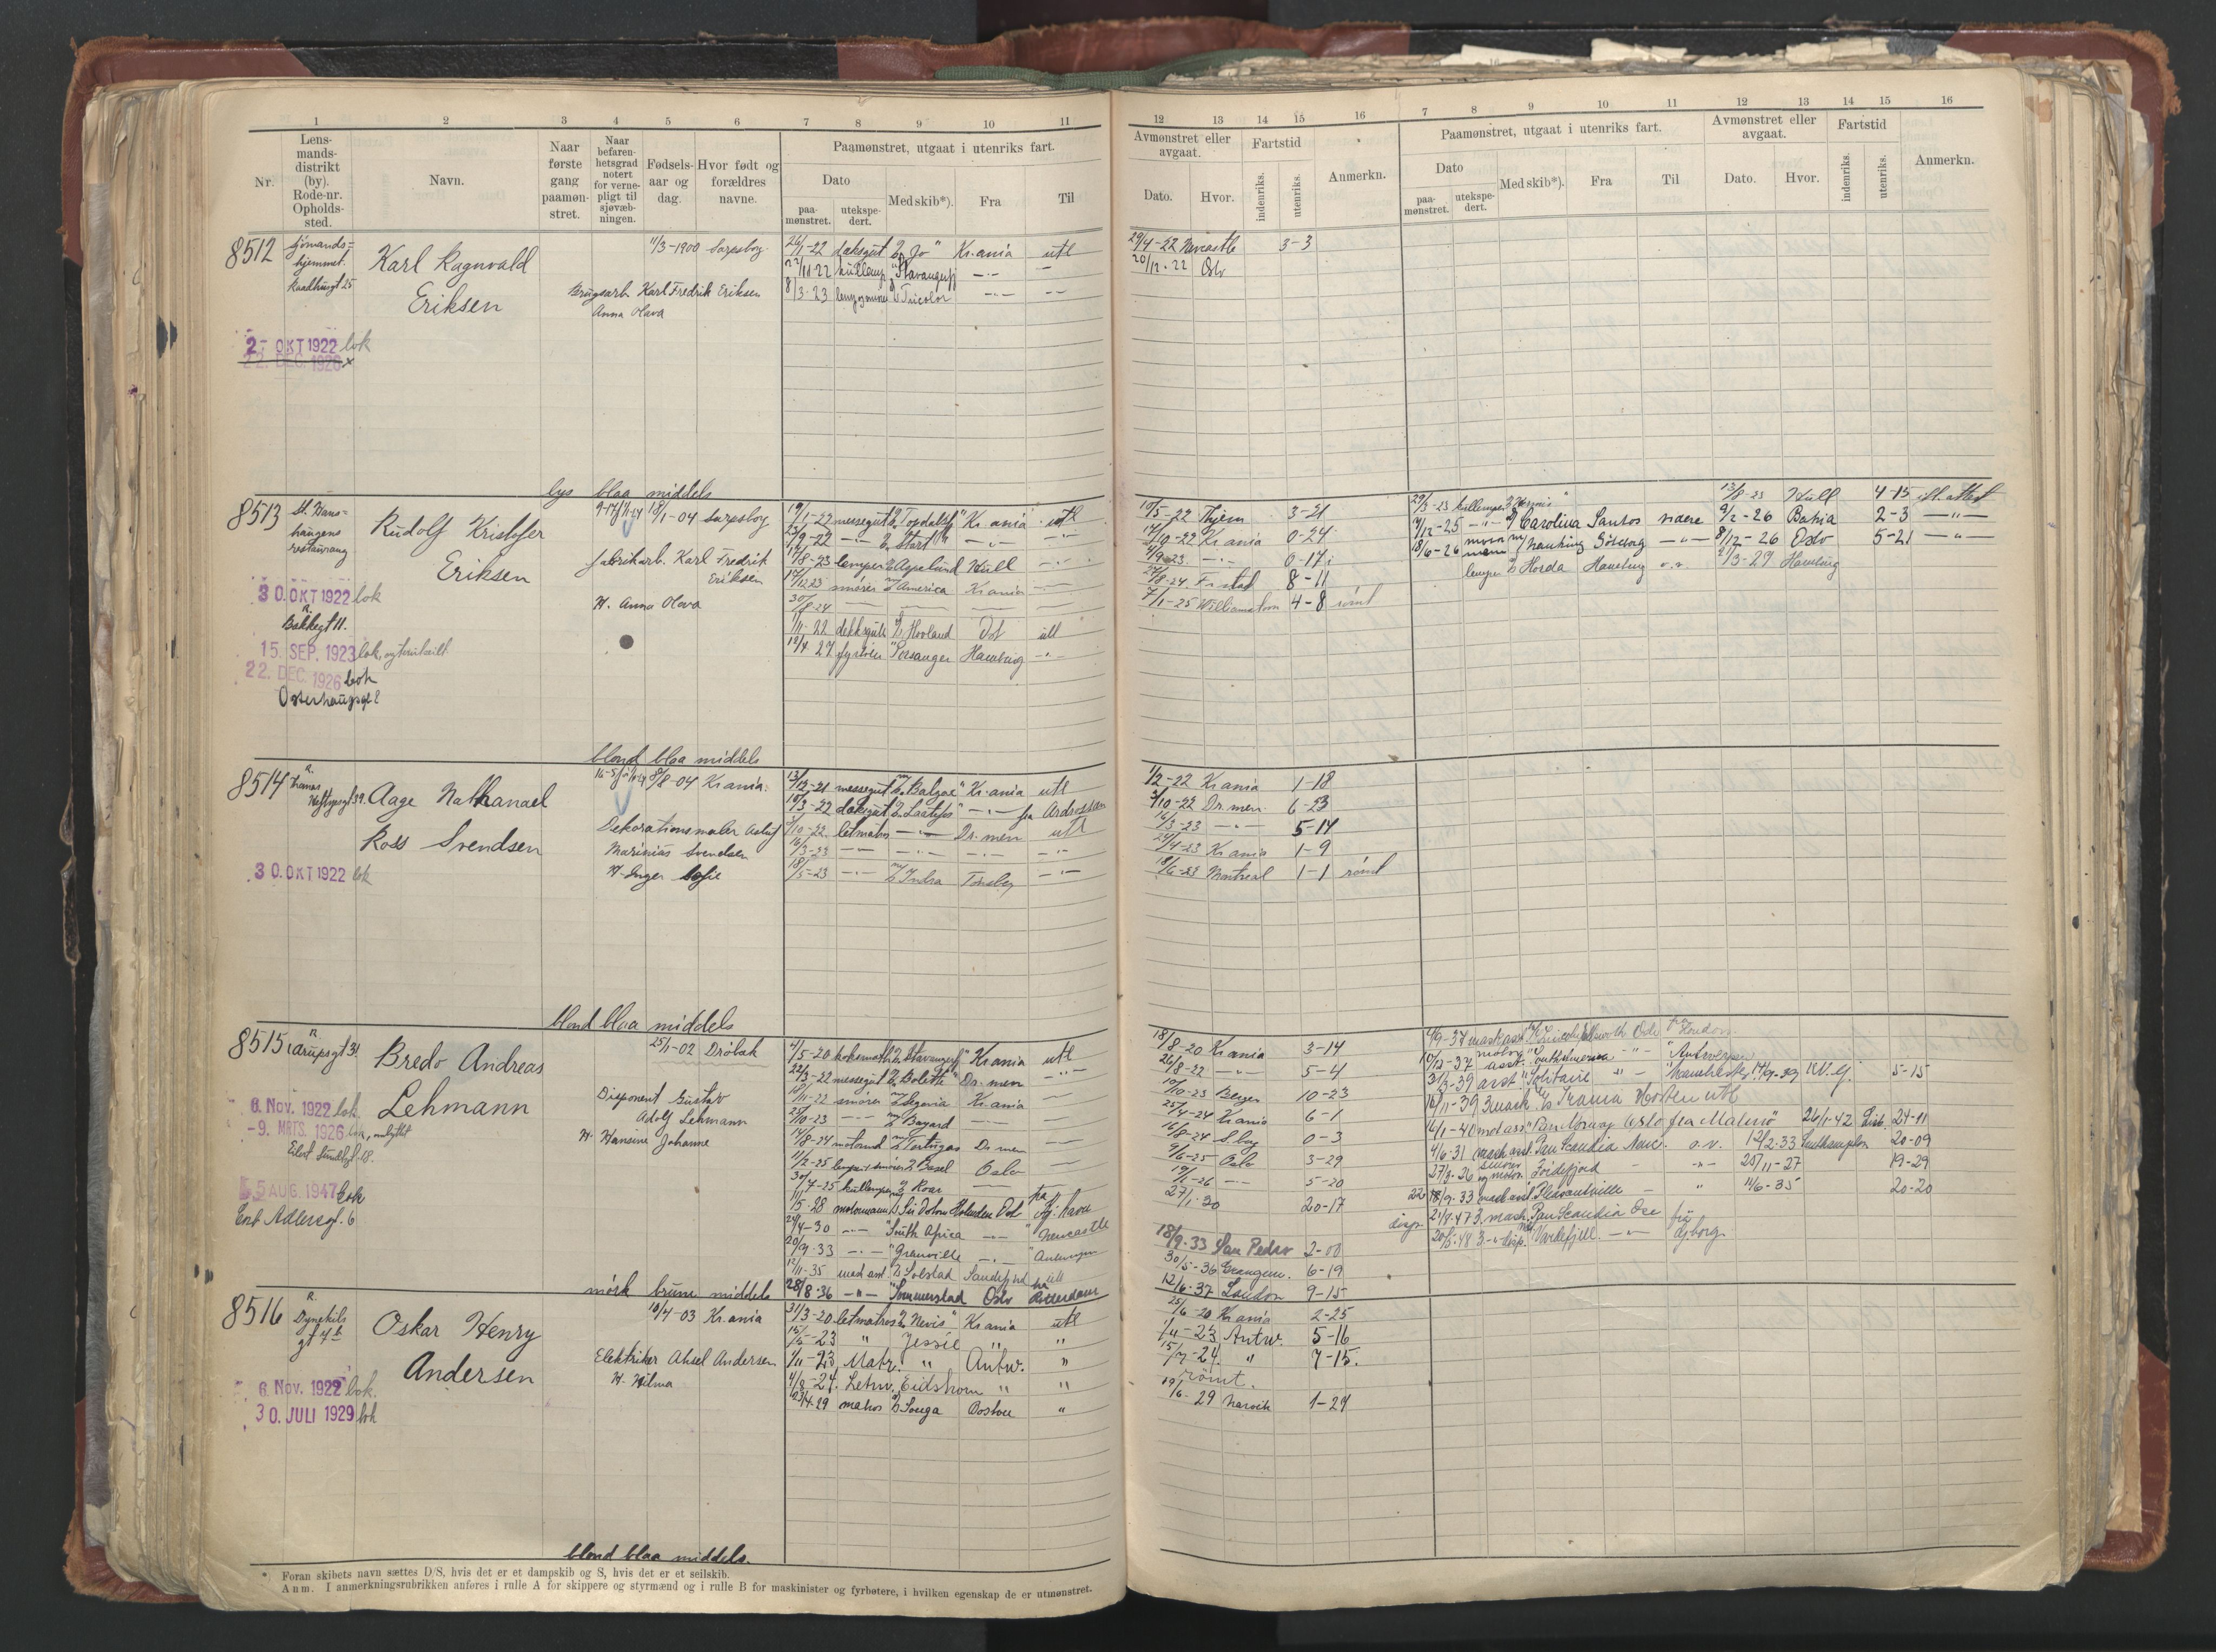 1 2 3 4 5 6 7 8 9 10 11
Nr.
Lens-
mands-
distrikt
(by).
Rode-nr.
Opholds-
sted.
Navn.
Naar
første
gang
paamøn-
stret.
Naar
befaren-
hetsgrad
notert
for verne-
pligt til
sjøvæb-
ningen.
Fødsels-
aar og
dag.
Hvor født og
forældres
navne.
Paamønstret, utgaat i utenriks fart.
Dato
paa-
mønstret.
utekspe-
dert.
Med skib*).
Fra
Til
8512 Sjømands=
hjemmet.
Raadhusgt 25
Karl Ragnvald
Eriksen
11/3-1900 Sarpsborg
Brugsarb. Karl Fredrik Eriksen
Anna Olava
26/1-22 dæksgut "Jo" Kr.ania utl
22/11-22 kullemp. "Stavangerfj —"— —
8/3-23 Tricolor —"— —
2- OKT 1922 bok
22. DEC. 1926 x
lys blaa middels
8513 St. Hans=
haugens
restaurang
Rudolf Kristofer
Eriksen
18/1-04 Sarpsborg
fabrikarb. Karl Fredrik
Eriksen
H. Anna Olava
19/1-22 messegut "Topdalsfj" Kr.ania utl
23/9-22 —"— "Start" —"— —
17/8-23 lemper Aspelund Hull —"—
17/12 23 smører America Kr.ania —
30/8-24 — — — —
1/11-22 dekksgutt Hovland Dot utl
12/4-27 fyrbøter "Porsanger Hamburg —"—
30. OKT 1922 bok
R.
Bakkegt 11.
15. SEP. 1923 bok,
22. DEC. 1926 bok
Osterhausgt 2
blond blaa middels
8514 R.
Thomas
Heftyesgt 39.
Aage Nathanael
Ross Svendsen
8/8-04 Kr.ania.
Dekorationsmaler Aslaf
Marinius Svendsen
H. Inger Sofie
13/12-21 messegut "Balgox" Kr.ania utl
10/3-22 dæksgut "Laatefos" —"— fra Ardrossan
3/10-22. letmatros —"— Dr.men utl
16/3-23 —"— —"— —"— —"—
18/5-23 —"— Indra Tønsberg —"—
30. OKT 1922 bok
blond blaa middels
8515 R.
Darupsgt 31
Bredo Andreas
Lehmann
25/1-02 Drøbak
Disponent Gustav
Adolf Lehmann
H. Hansine Johanne
1/5-20 koksmath "Stavangerfj" Kr.ania utl
22/3-22 messegut "Bolette" Dr.men —"—
10/11-22 smører Segovia Kr.ania —
25/10-23 —"— Bayard —"— —
14/8-24 motormd Tortugas Dr.men —
11/2-25 lemper & smører Basel Oslo —
30/7-25 kullemper Roar —
1/5-28 motormann Sir Osborn Holmden Dot fra Kj.havn
24/4-30 —"— "South Africa —"— "Newcastle
20/9-33 —"— "Granville —"— "Antwerpen
12/11-35 mask asst Solstad Sandefjord utl
28/8-36 —"— "Sommerstad Oslo fra Rotterdam
6. Nov. 1922 bok.
-9. MRTS. 1926 bok, ombyttet
Eilert Sundtsgt. 18.
5 AUG. 1947 bok
Cort Adlersgt. 6
mørk brune middels
8516 R.
Dynekils
gt 4 b
Oskar Henry
Andersen
10/4-03 Kr.ania
Elektriker Aksel Andersen
H. Hilma
31/3-20 letmatros "Nevis" Kr.ania utl
15/5-23 " Jessie " "
1/11-23 Matr. " Antw. "
4/8-24. Letm. Eidshorn " "
23/4-29 matros Songa Boston "
6. Nov. 1922 bok.
30. JULI 1929 bok
blond blaa middels.
* Foran skibets navn sættes D/S, hvis det er et dampskib og S, hvis det er et seilskib.
Anm. I anmerkningsrubrikken anføres i rulle A for skippere og styrmænd og i rulle B for maskinister og fyrbøtere, i hvilken egenskap de er utmønstret.
12 13 14 15 16 7 8 9 10 11 12 13 14 15 16
Avmønstret eller
avgaat.
Dato. Hvor.
Fartstid
indenriks. utenriks.
Anmerkn.
Paamønstret, utgaat i utenriks fart.
Dato
paa-
mønstret.
utekspe-
dert.
Med skib*). Fra Til
Avmønstret eller
avgaat.
Dato. Hvor.
Fartstid
indenriks. utenriks.
Anmerkn.
29/4-22 Newcastle 3-3
20/12-22 Oslo
10/5-22 Thjem 3-21
17/10-22 Kr.ania 0-24
4/9-23 —"— 0-17
27/8-24 Fr.stad 8-11
7/1-25 Williamstown 4-8 rømt
29/3-23 kullemper 13/8-23 Hull 4-15 ill. attest
14/12-25 —"— Carolina Santos videre 9/2-26 Bahia 2-3 —"—
18/6-26 Nanking Göteborg —"— 8/12-26 Oslo 5-21 —"—
lemper Horda Hamburg o.v. 21/3-29 Hamburg
1/2-22 Kr.ania 1-18
3/10-22 Dr.men 6-23
16/3-23 —"— 5-14
24/4-23 Kr.ania 1-9
18/6-23 Montreal 1-1 rømt
18/8-20 Kr.ania 3-14
26/8-22 —"— 5-4
10/10-23 Bergen 10-23
25/4-24 Kr.ania 6-1
16/8-24 S.borg 0-3
9/6-25 Oslo 3-29
19/1-26 —"— 5-20
27/1-30 20-17
18/9-33 San Pedro 2-00
30/5-36 Grangem. 6-19
12/6-37 London 9-15
4/9-37 mask asst Lincoln Ellsworth Oslo fra London
10/12-37 motor asst. South America —"— "Antwerpen
31/3-39 asst "Solitaire —"— "Manchester 14/9-39 N.Y. 5-15
16/11-39 3 mask. Trama Horten utl
16/1-40 mot ass "Pan Norway Oslo fra Malmö 26/1-42 Lisb. 24-11
4/6-31 mask asst. Pan Scandia Newc. o.v. 12/2-33 Southampton 20-09
27/3-26 smører og motorm Foidefjord —"— 25/11-27 19-29
18/9-33 mask asst. Pleasantville — " 11/6-35 20-20
21/8-47 3. mask. Pan Scandia Oslo fra
disp. 20/5-48 3-"- disp. Vardefjell —"— Nyborg
25/6-20 Kr.ania 2-25
1/11-23 Antw. 5-16
15/7-24. " 7-15.
rømt.
19/6-29 Narvik 1-27